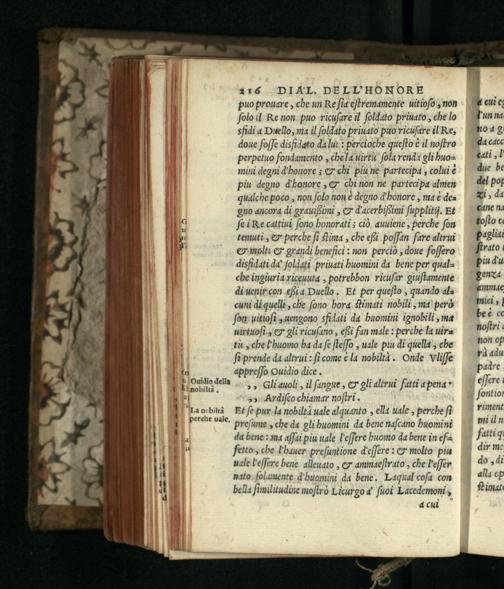 216 DIAL. DELL'HONORE
puo prouare, che un Re sia estremamente uitioso, non
solo il Re non puo ricusare il soldato priuato, che lo
sfidi a Duello, ma il soldato priuato puo ricusare il Re,
doue fosse disfidato da lui: percioche questo è il nostro
perpetuo fondamento, che la uirtù sola renda gli huo=
mini degni d'honore; & chi piu ne partecipa, colui è
piu degno d'honore, & chi non ne partecipa almen
qualche poco, non solo non è degno d'honore, ma è de=
gno ancora di grauissimi, & d'acerbissimi supplitij. Et
se i Re cattiui sono honorati; ciò auuiene, perche son
temuti, & perche si stima, che essi possan fare altrui
& molti & grandi benefici: non perciò, doue fossero
disfidati da' soldati priuati huomini da bene per qual=
che ingiuria riceuuta, potrebbon ricusar giustamente
di uenir con essi a Duello. Et per questo, quando al=
cuni di quelli, che sono hora stimati nobili, ma però
son uitiosi, uengono sfidati da huomini ignobili, ma
uirtuosi, & gli ricusano, essi fan male: perche la uir=
tù, che l'huomo ha da se stesso, uale piu di quella, che
si prende da altrui: si come è la nobiltà. Onde Vlisse
appresso Ouidio dice.
Ouidio della
nobiltà.
,, Gli auoli, il sangue, & gli altrui fatti a pena
,, Ardisco chiamar nostri.
La nobiltà
perche uale.
Et se pur la nobiltà uale alquanto, ella uale, perche si
presume, che da gli huomini da bene nascano huomini
da bene: ma assai piu uale l'essere huomo da bene in ef=
fetto, che l'hauer presuntione d'essere: & molto piu
uale l'essere bene alleuato, & ammaestrato, che l'esser
nato solamente d'huomini da bene. Laqual cosa con
bella similitudine mostrò Licurgo a' suoi Lacedemoni,
a cui